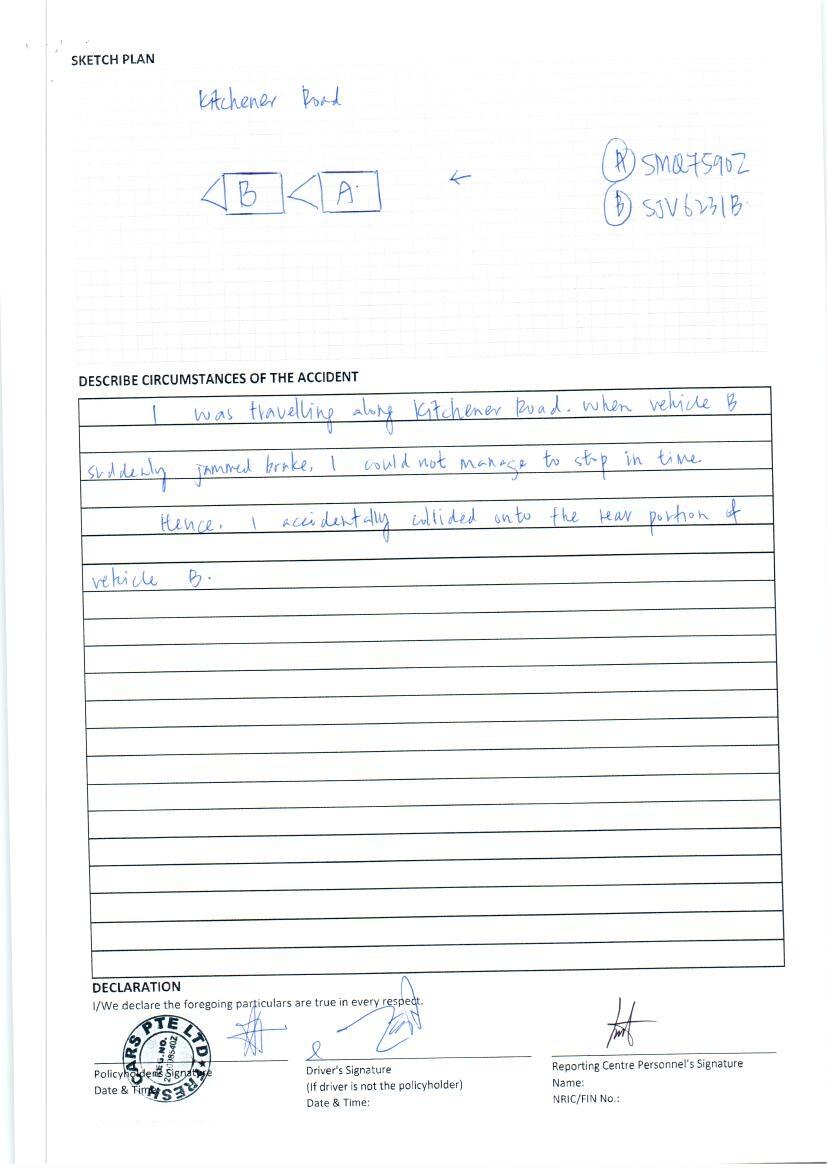 SKETCH PLAN
Kitchener Road
B A
A SMQ7590Z
B SJV6231B
DESCRIBE CIRCUMSTANCES OF THE ACCIDENT
I was travelling along Kitchener Road. when vehicle B
suddenly jammed brake, I could not manage to stop in time.
Hence, I accidentally collided onto the rear portion of
vehicle B.
DECLARATION
I/We declare the foregoing particulars are true in every respect.
FRESH CARS PTE LTD
REG.NO.
Policyholder's Signature
Date & Time:
Driver's Signature
(If driver is not the policyholder)
Date & Time:
Reporting Centre Personnel's Signature
Name:
NRIC/FIN No.: